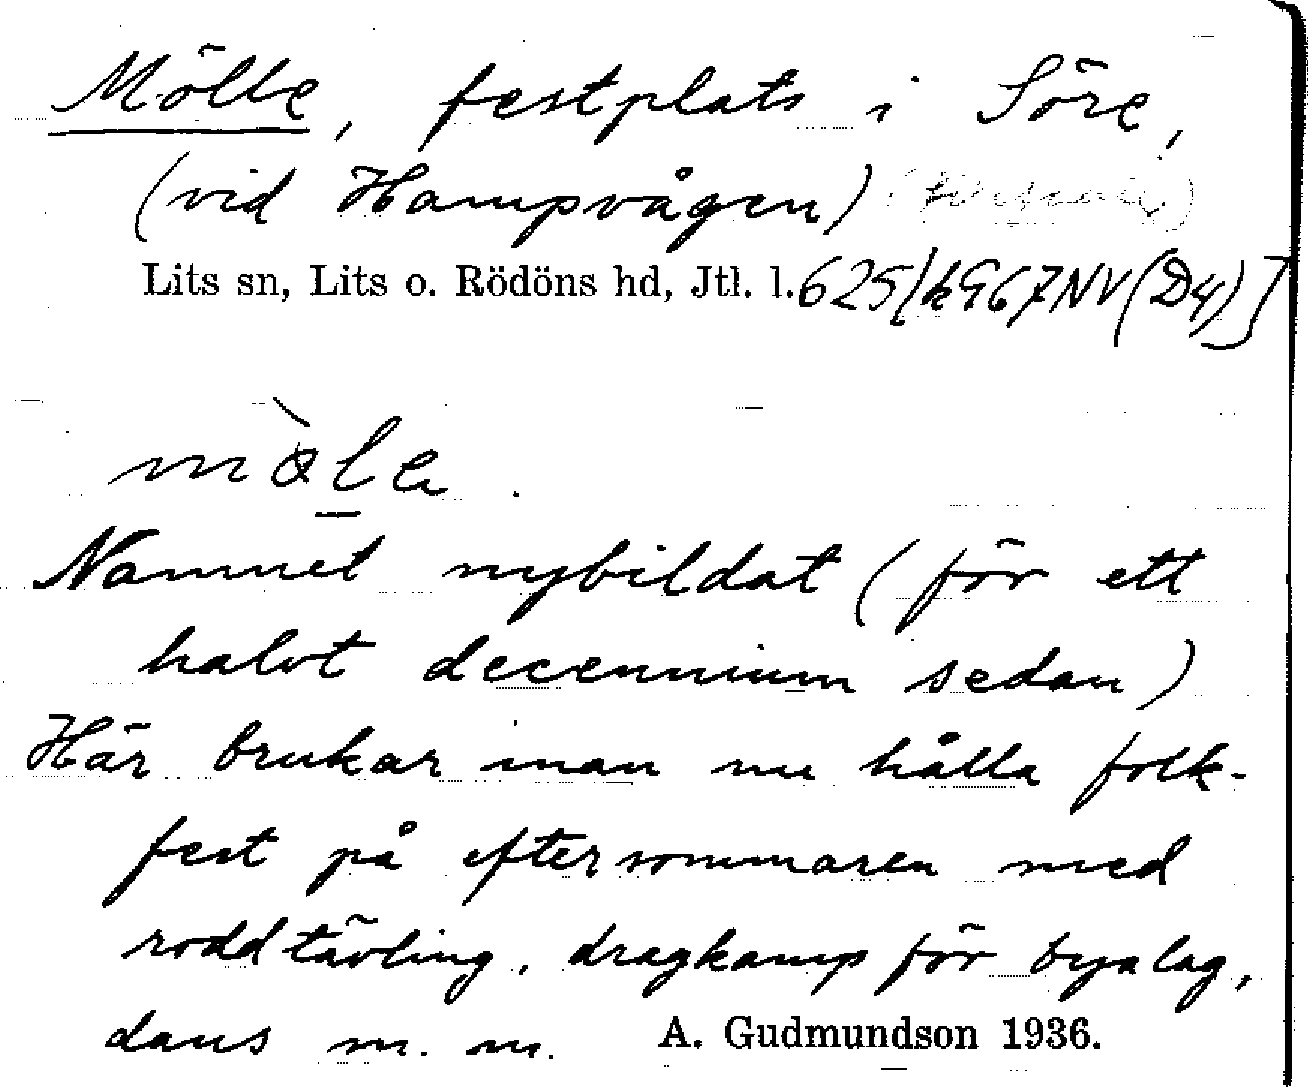 Mölle, festplats i Söre,
(vid Hampvågen)
Lits sn, Lits o. Rödöns hd, Jtl. l. 625[k967NV(D4)]
Namnet nybildat (för ett
halvt decennium sedan)
Här brukar man nu hålla folk-
fest på eftersommaren med
roddtävling, dragkamp för byalag,
dans m. m. A. Gudmundson 1936.